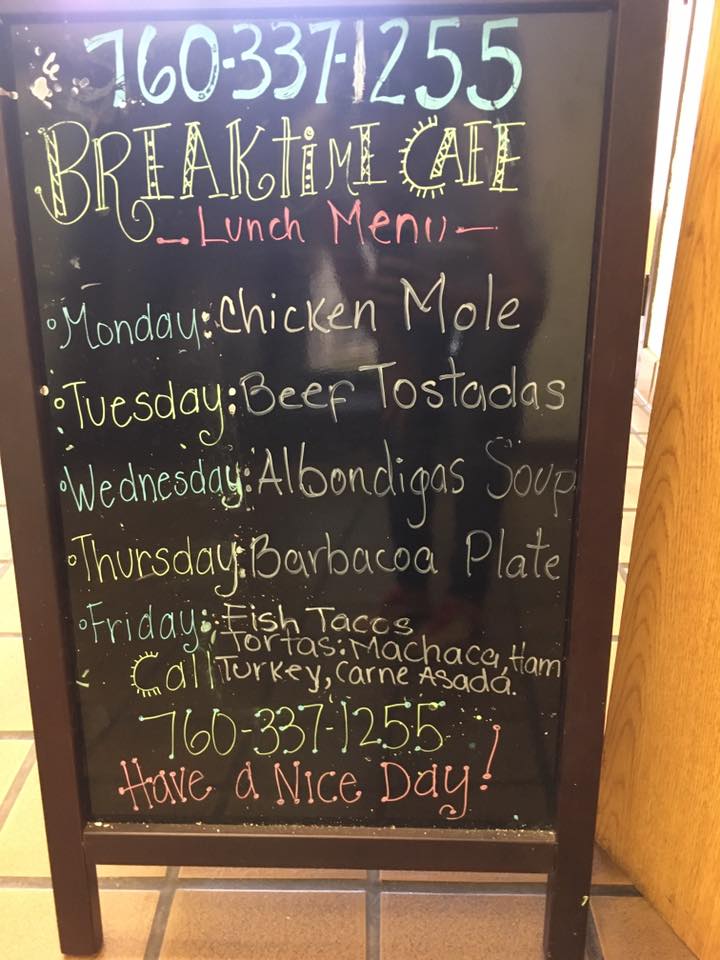 760-337-1255
BREAKtiME CAFE
- Lunch Menu -
Monday: Chicken Mole
Tuesday: Beef Tostadas
Wednesday: Albondigas Soup
Thursday: Barbacoa Plate
Friday: Fish Tacos
Tortas: Machaca, Ham
Turkey, Carne Asada.
Call
760-337-1255
Have a Nice Day!